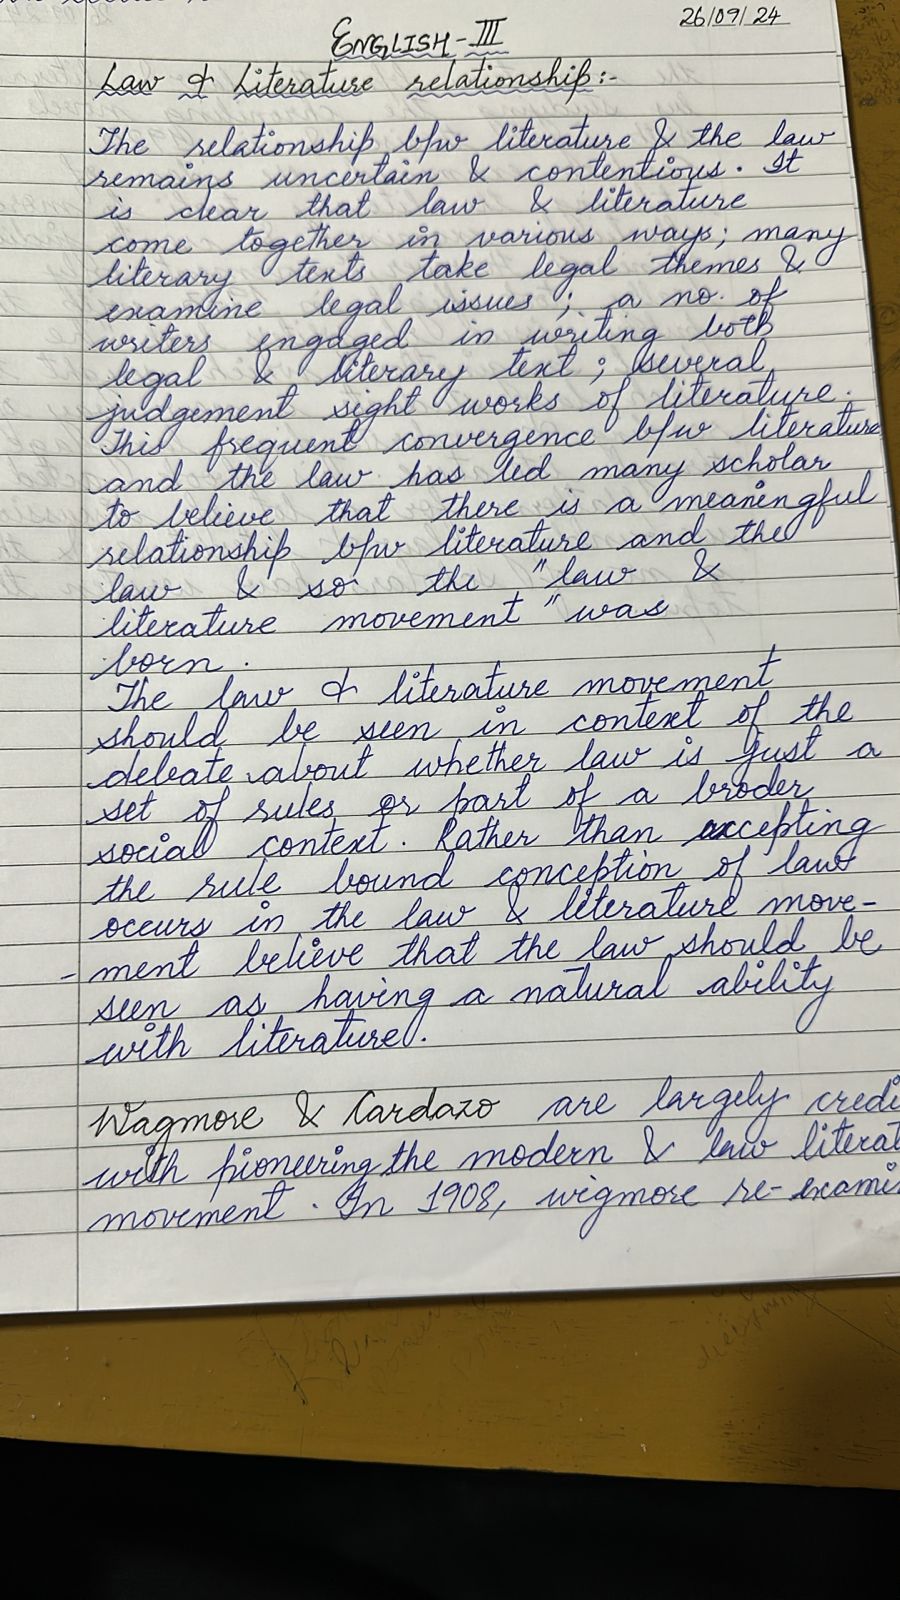 26/09/24
ENGLISH-III
Law & Literature relationship:-
The relationship b/w literature & the law
remains uncertain & contentious. It
is clear that law & literature
come together in various ways; many
literary texts take legal themes &
examine legal issues; a no. of
writers engaged in writing both
legal & literary text; several
judgement sight works of literature.
This frequent convergence b/w literature
and the law has led many scholar
to believe that there is a meaningful
relationship b/w literature and the
law & so the "law &
literature movement" was
born.
The law & literature movement
should be seen in context of the
debate about whether law is just a
set of rules or part of a broder
social context. Rather than accepting
the rule bound conception of law
occurs in the law & literature move-
-ment believe that the law should be
seen as having a natural ability
with literature.
Wagmore & Cardazo are largely credi
with pioneering the modern & law literat
movement. In 1908, wigmore re-exami